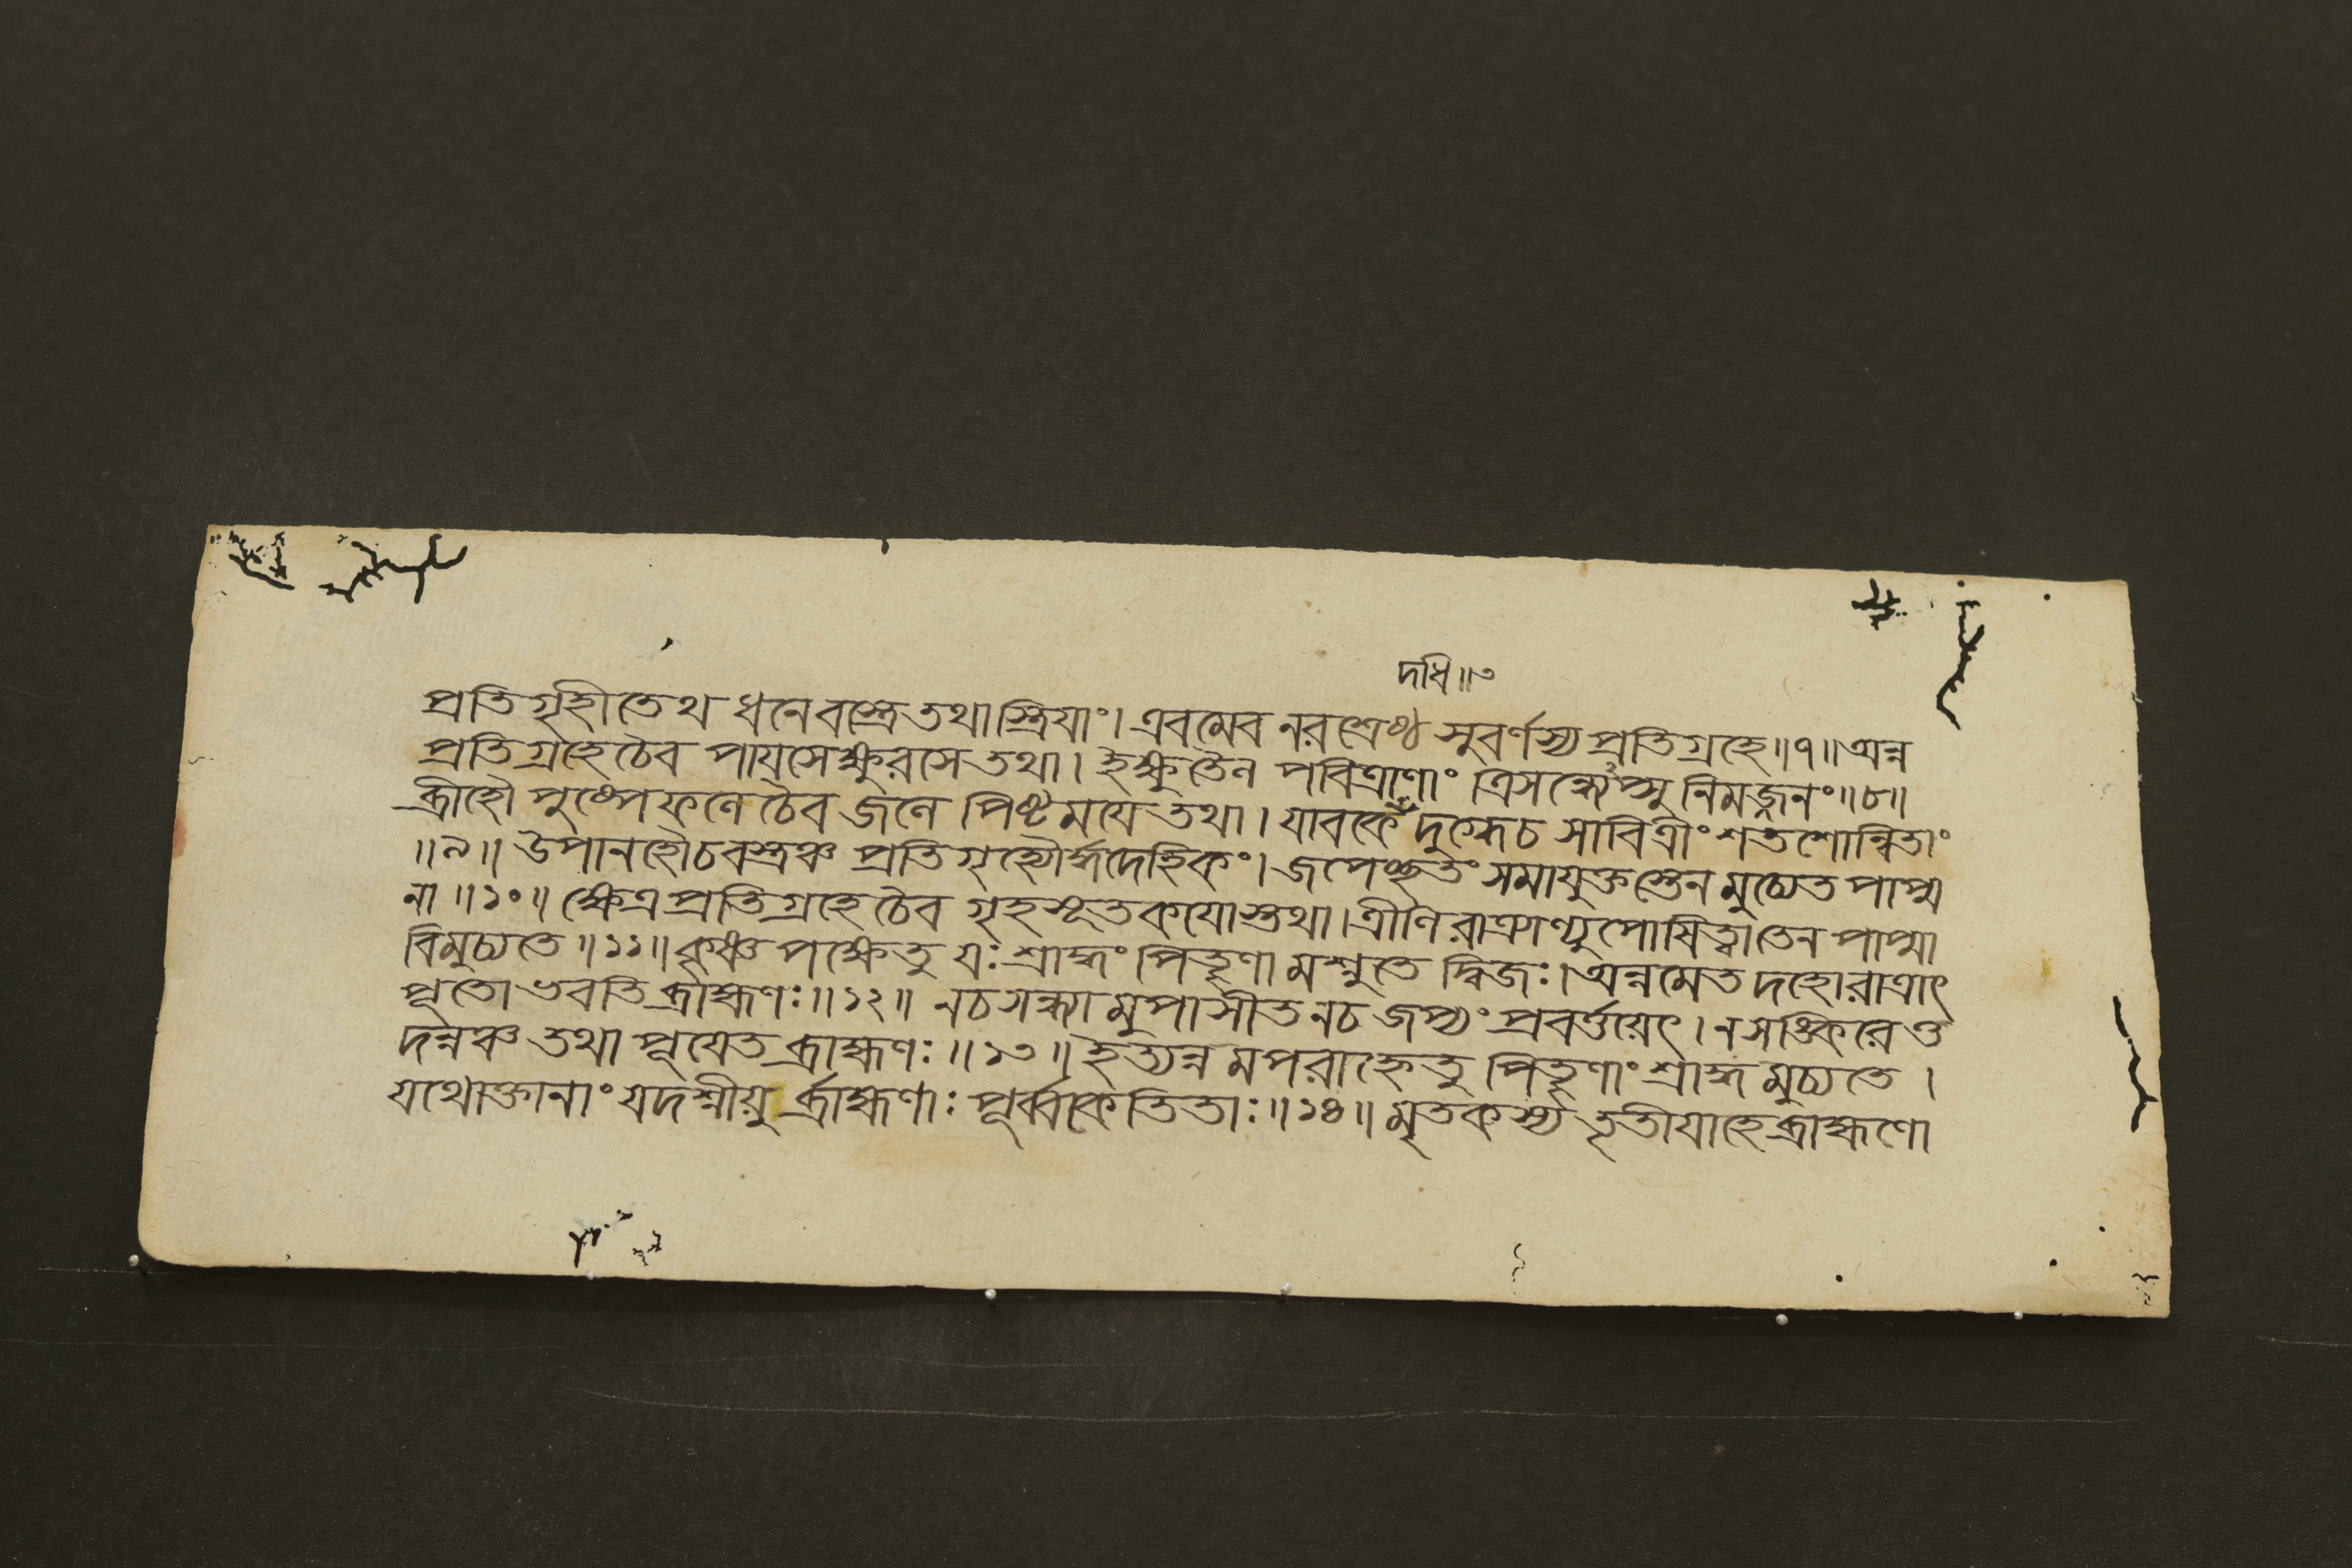 দধি॥৩
প্রতিগৃহীতেথ ধনেবস্ত্রেতথাস্ত্রিযাং। এবমেব নরশ্রেষ্ঠ সুবর্ণস্য প্রতিগ্রহে॥৭॥অন্ন
প্রতিগ্রহেচৈব পাযসেক্ষুরসেতথা। ইক্ষুতৈল পবিত্রাণাং ত্রিসন্ধ্যেপ্সু নিমজ্জনং॥৮॥
ব্রীহৌ পুষ্পেফলেচৈব জলে পিষ্টমযে তথা। যাবকে দুগ্ধেচ সাবিত্রীং শতশোন্বিতাং
॥৯॥ উপানহৌচবস্ত্রঞ্চ প্রতিগৃহ্যৌর্দ্ধদেহিকং। জপেচ্ছতং সমাযুক্তস্তেন মুচ্যেত পাপ্ম
না॥১০॥ ক্ষেত্রপ্রতিগ্রহেচৈব গৃহসূতকযোস্তথা। ত্রীণি রাত্রাণ্যুপোষিত্বাতেন পাপ্মা
বিমুচ্যতে॥১১॥ কৃষ্ণ পক্ষেতু যঃ শ্রাদ্ধং পিতৄণামশ্নুতে দ্বিজঃ। অন্নমেতদহোরাত্রাৎ
পূতোভবতি ব্রাহ্মণঃ॥১২॥ নচ সন্ধ্যামুপাসীত নচ জপ্যং প্রবর্ত্তয়েৎ। ন সঙ্কিরেত্ত
দন্নঞ্চ তথা পূযেত ব্রাহ্মণঃ॥১৩॥ ইত্যন্নমপরাহ্নেতু পিতৄণাং শ্রাদ্ধমুচ্যতে।
যথোক্তানাং যদশ্নীয়ুর্ব্রাহ্মণাঃ পূর্ব্বকেতিতাঃ॥১৪॥ মৃতকস্য তৃতীযাহেব্রাহ্মণো